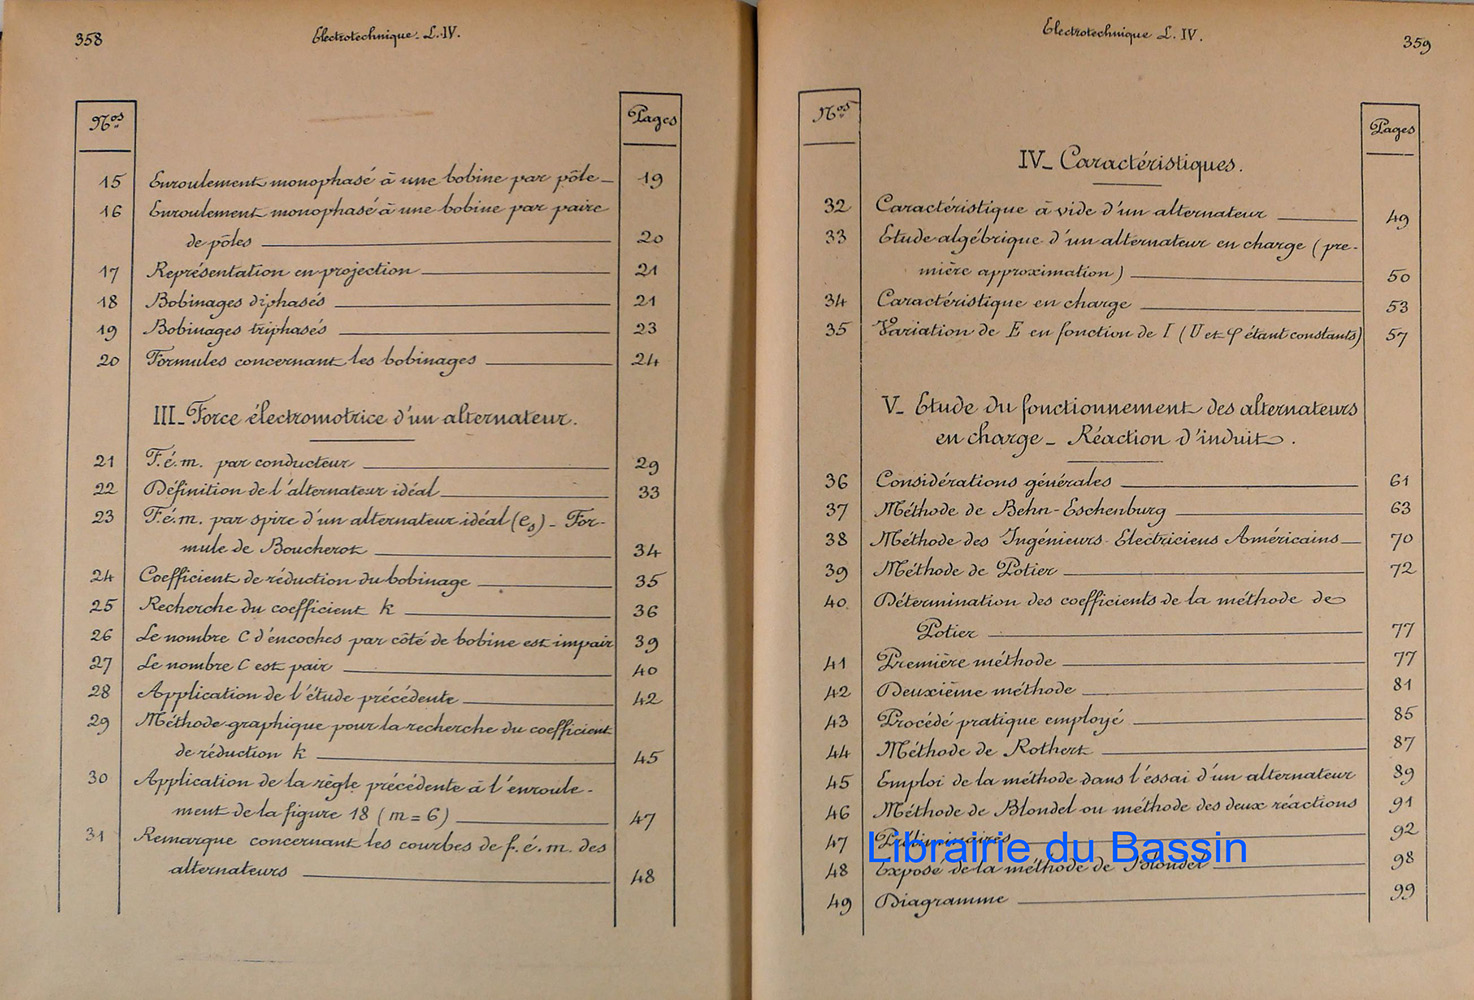 358
Electrotechnique. L.IV.
Nos
Pages
15 Enroulement monophasé à une bobine par pôle 19
16 Enroulement monophasé à une bobine par paire
de pôles 20
17 Représentation en projection 21
18 Bobinages diphasés 21
19 Bobinages triphasés 23
20 Formules concernant les bobinages 24
III_ Force électromotrice d'un alternateur.
21 F.é.m. par conducteur 29
22 Définition de l'alternateur idéal 33
23 F.é.m. par spire d'un alternateur idéal (es) _ For-
mule de Boucherot 34
24 Coefficient de réduction du bobinage 35
25 Recherche du coefficient k 36
26 Le nombre C d'encoches par côté de bobine est impair 39
27 Le nombre C est pair 40
28 Application de l'étude précédente 42
29 Méthode graphique pour la recherche du coefficient
de réduction k 45
30 Application de la règle précédente à l'enroule-
ment de la figure 18 (m = 6) 47
31 Remarque concernant les courbes de f.é.m. des
alternateurs 48
Electrotechnique L. IV.
359
Nos
Pages
IV_ Caractéristiques.
32 Caractéristique à vide d'un alternateur 49
33 Etude algébrique d'un alternateur en charge (pre-
mière approximation) 50
34 Caractéristique en charge 53
35 Variation de E en fonction de I (U et φ étant constants) 57
V_ Etude du fonctionnement des alternateurs
en charge _ Réaction d'induit.
36 Considérations générales 61
37 Méthode de Behn-Eschenburg 63
38 Méthode des Ingénieurs Electriciens Américains 70
39 Méthode de Potier 72
40 Détermination des coefficients de la méthode de
Potier 77
41 Première méthode 77
42 Deuxième méthode 81
43 Procédé pratique employé 85
44 Méthode de Rothert 87
45 Emploi de la méthode dans l'essai d'un alternateur 89
46 Méthode de Blondel ou méthode des deux réactions 91
47 Préliminaires 92
Librairie du Bassin
48 Exposé de la méthode de Blondel 98
49 Diagramme 99